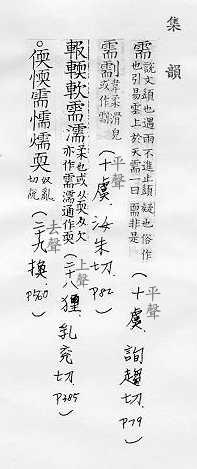 集韻
需 說文頷也遇雨不進止頷也引易雲上於天需一曰疑也俗作 非是 平聲（十虞、詢趨切、P79）
需 韋柔滑皃或作 平聲（十虞、汝朱切、P82）
輭軟需濡 柔也或从耎从欠亦作需濡通作耎 上聲（二十八獮、乳兗切 P385）
。偄愞需懦 耎 奴亂切 去聲（二十九換、P560）